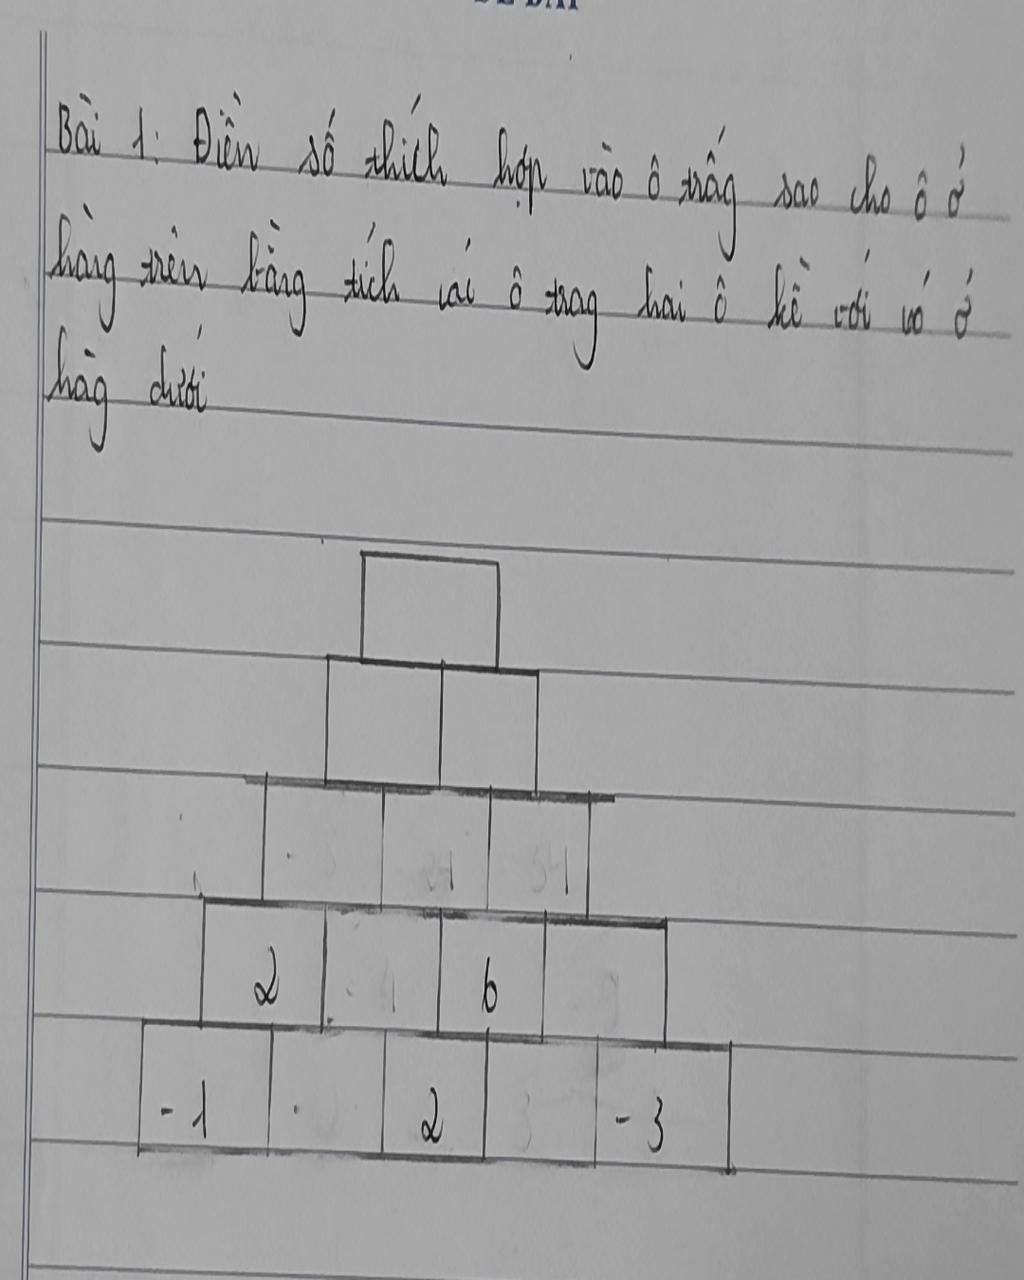 ĐỀ BÀI
Bài 1: Điền số thích hợp vào ô trấg sao cho ô ở
hàng trên bằng tích cái ô trag hai ô kề với nó ở
hàg dưới
2 6
-1 2 -3